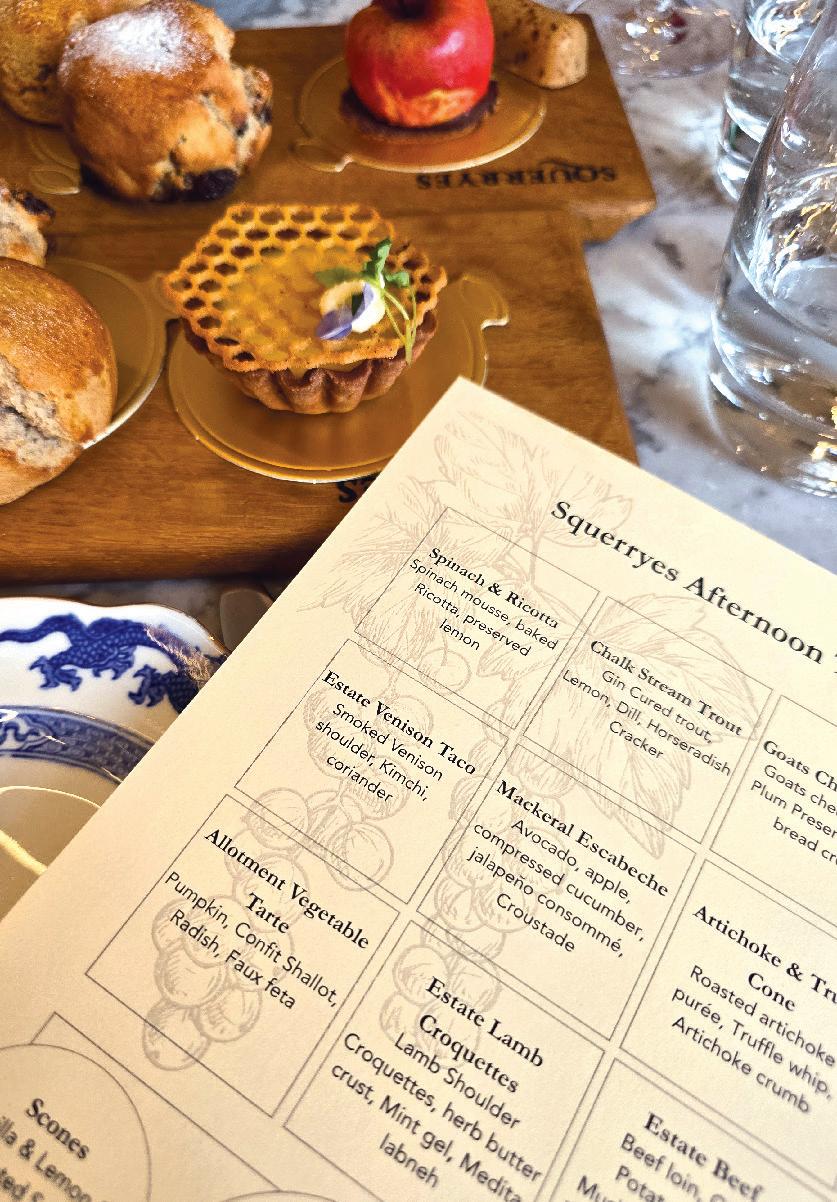 SQUERRYES
Squerryes Afternoon
Spinach & Ricotta
Spinach mousse, baked
Ricotta, preserved
lemon
Chalk Stream Trout
Gin Cured trout,
Lemon, Dill, Horseradish
Cracker
Goats
Goats
Plum
bread
Estate Venison Taco
Smoked Venison
shoulder, Kimchi,
coriander
Mackeral Escabeche
Avocado, apple,
compressed cucumber,
jalapeño consommé,
Croustade
Artichoke &
Cone
Roasted artichoke
purée, Truffle whip,
Artichoke crumb
Allotment Vegetable
Tarte
Pumpkin, Confit Shallot,
Radish, Faux feta
Estate Lamb
Croquettes
Lamb Shoulder
Croquettes, herb butter
crust, Mint gel, Medita
labneh
Estate Beef
Beef loin,
Scones
& Lemon